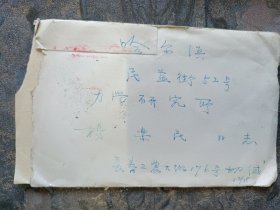 哈尔滨
民益街52号
力学研究所
乐民 同志
长春工农大街176号